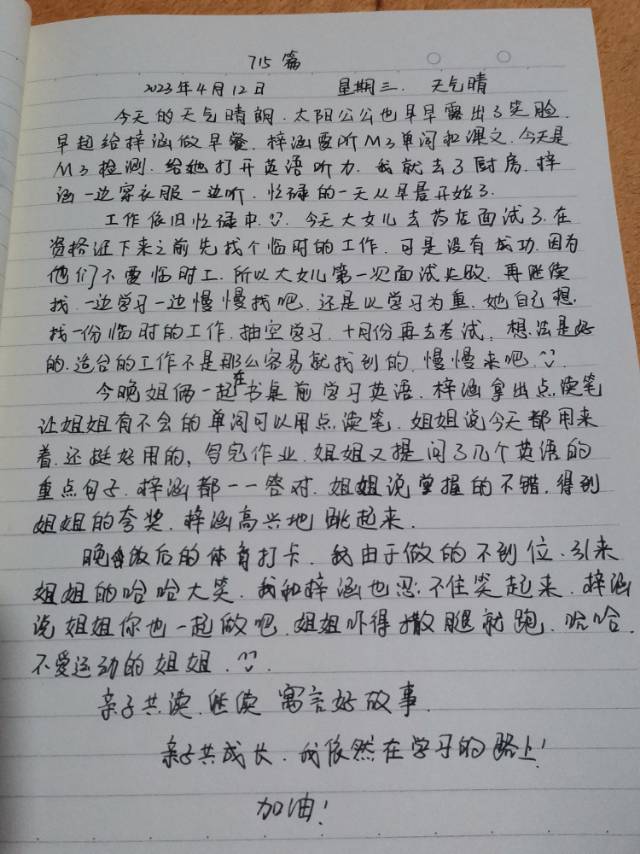 715篇
2023年4月12日 星期三. 天气晴
今天的天气晴朗. 太阳公公也早早露出了笑脸.
早起给梓涵做早餐. 梓涵要听M3单词和课文. 今天是
M3检测. 给她打开英语听力. 我就去了厨房. 梓
涵一边穿衣服一边听. 忙碌的一天从早晨开始了.
工作依旧忙碌中. 今天大女儿去药店面试了. 在
资格证下来之前先找个临时的工作. 可是没有成功. 因为
他们不要临时工. 所以大女儿第一次面试失败. 再继续
找. 一边学习一边慢慢找吧. 还是以学习为重. 她自己想.
找一份临时的工作. 抽空学习. 十月份再去考试. 想法是好
的. 适合的工作不是那么容易就找到的. 慢慢来吧.
今晚姐俩一起在书桌前学习英语. 梓涵拿出点读笔
让姐姐有不会的单词可以用点读笔. 姐姐说今天都用来
着. 还挺好用的, 写完作业. 姐姐又提问了几个英语的
重点句子. 梓涵都一一答对. 姐姐说掌握的不错. 得到
姐姐的夸奖. 梓涵高兴地跳起来.
晚饭后的体育打卡. 我由于做的不到位. 引来
姐姐的哈哈大笑. 我和梓涵也忍不住笑起来. 梓涵
说姐姐你也一起做吧. 姐姐吓得撒腿就跑. 哈哈.
不爱运动的姐姐.
亲子共读. 继续 寓言好故事.
亲子共成长. 我依然在学习的路上!
加油!